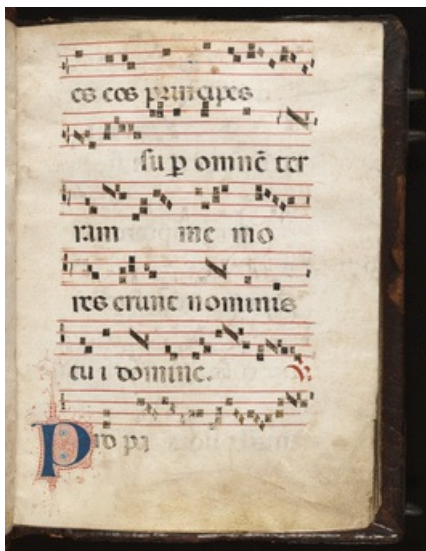 es eos principes
su ꝑ omnē ter
ram me mo
res erunt nominis
tu i domine. ℟.
Pro pa